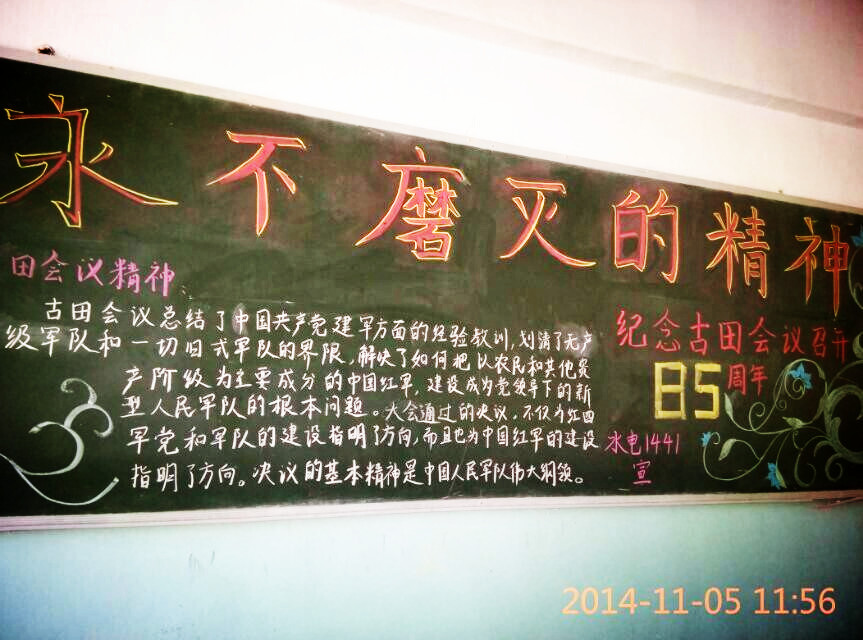 永不磨灭的精神
田会议精神：
古田会议总结了中国共产党建军方面的经验教训，划清了无产
级军队和一切旧式军队的界限，解决了如何把以农民和其他农
产阶级为主要成分的中国红军，建设成为党领导下的新
型人民军队的根本问题。大会通过的决议，不仅为红四
军党和军队的建设指明了方向，而且也为中国红军的建设
指明了方向。决议的基本精神是中国人民军队伟大纲领。
纪念古田会议召开
85周年
水电1441
宣
2014-11-05 11:56